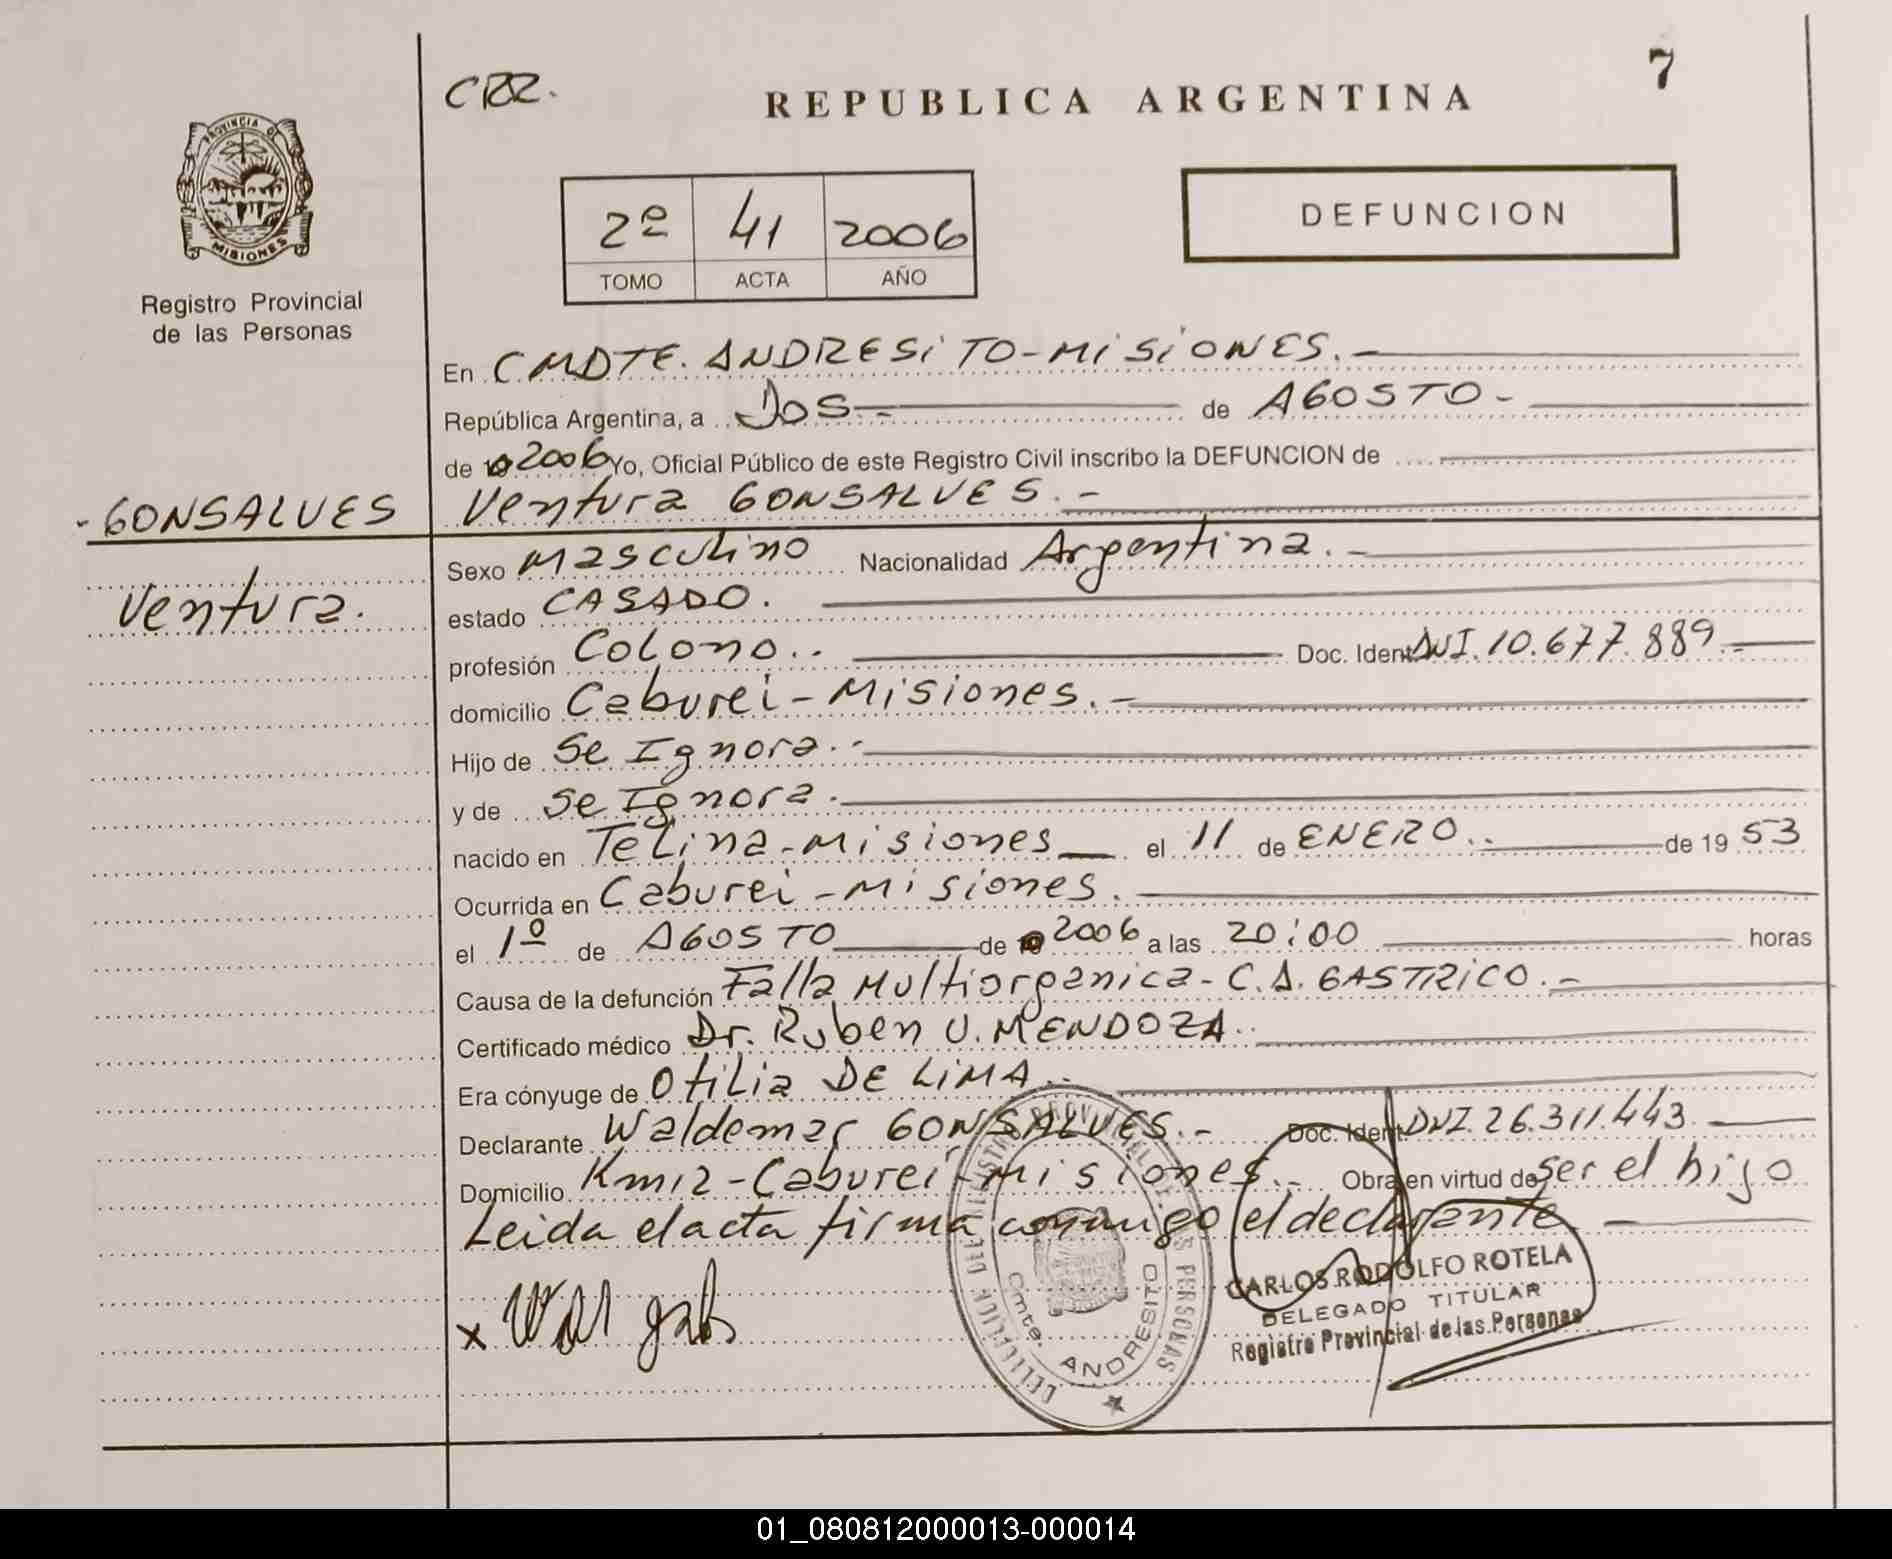 CRR.
REPUBLICA ARGENTINA
7
PROVINCIA DE
MISIONES
Registro Provincial
de las Personas
2º 41 2006
TOMO ACTA AÑO
DEFUNCION
En CMDTE. ANDRESITO-MISIONES.-
República Argentina, a Dos.- de AGOSTO-
de 2006 Yo, Oficial Público de este Registro Civil inscribo la DEFUNCION de
-GONSALVES
Ventura GONSALVES.-
Ventura.
Sexo Masculino Nacionalidad Argentina.-
estado CASADO.
profesión Colono.. Doc. Ident. DNI. 10.677.889
domicilio Caburei-Misiones.-
Hijo de Se Ignora.-
y de Se Ignora.
nacido en Telina-Misiones el 11 de ENERO.. de 19 53
Ocurrida en Caburei-Misiones.
el 1º de AGOSTO de 2006 a las 20:00 horas
Causa de la defunción Falla Multiorganica-C.A. GASTRICO.-
Certificado médico Dr. Ruben U. MENDOZA..
Era cónyuge de Otilia DE LIMA..
Declarante Waldemar GONSALVES.- Doc. Ident. DNI. 26.311.443
Domicilio Km12-Caburei-Misiones.- Obra en virtud de ser el hijo
Leida el acta firma conmigo el declarante.
x
DELEGACION DEL REGISTRO PROVINCIAL DE LAS PERSONAS
Cmte. ANDRESITO
CARLOS RODOLFO ROTELA
DELEGADO TITULAR
Registro Provincial de las Personas
01_080812000013-000014